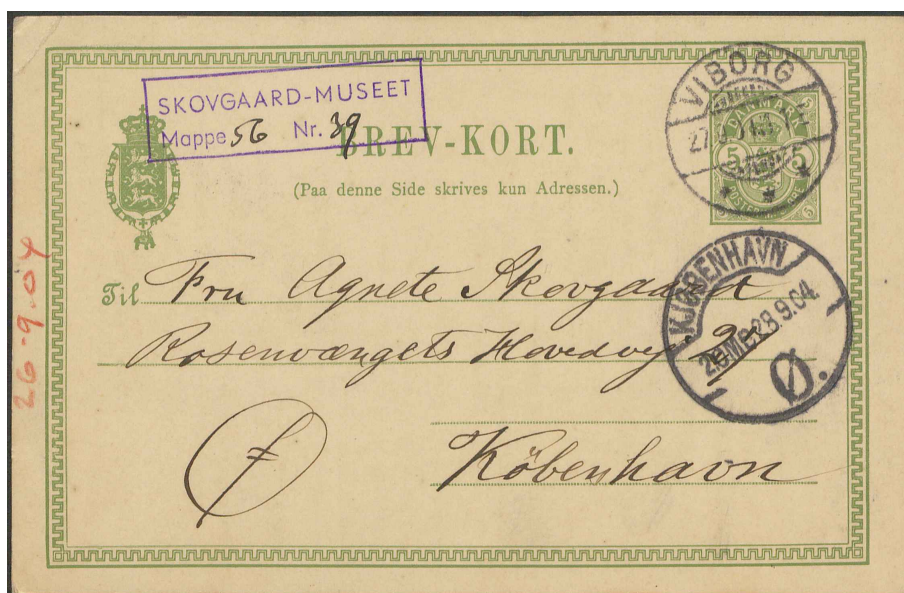 SKOVGAARD-MUSEET
Mappe 56 Nr. 39
BREV-KORT.
(Paa denne Side skrives kun Adressen.)
VIBORG
DANMARK
5 5
Til Fru Agnete Skovgaard
Rosenvængets Hovedvej
Ø
København
KJØBENHAVN
28.9.04
Ø.
26-9.04